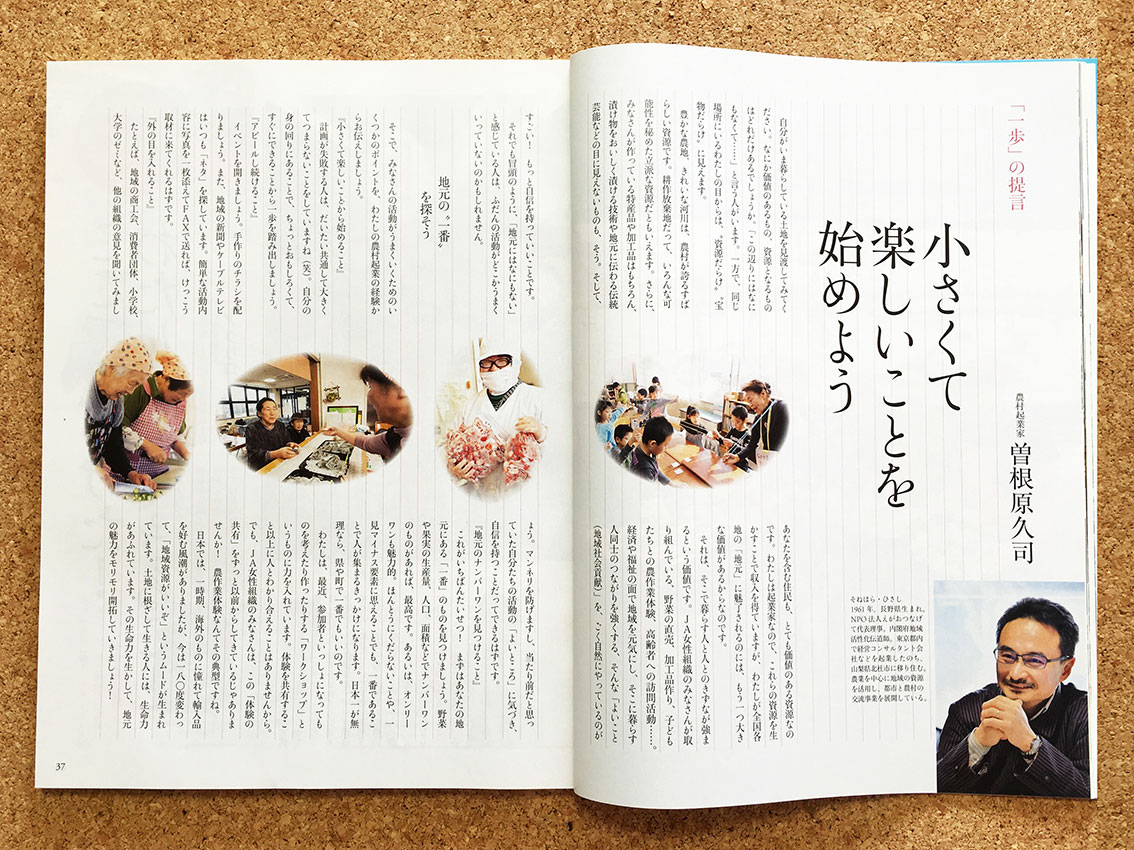 「一歩」の提言
小さくて
楽しいことを
始めよう
農村起業家 曽根原久司
自分がいま暮らしている土地を見渡してみてく
ださい。なにか価値のあるもの、資源となるもの
はどれだけあるでしょうか。「この辺りにはなに
もなくて……」と言う人がいます。一方で、同じ
場所にいるわたしの目からは、〝資源だらけ〟〝宝
物だらけ〟に見えます。
豊かな農地、きれいな河川は、農村が誇るすば
らしい資源です。耕作放棄地だって、いろんな可
能性を秘めた立派な資源だともいえます。さらに、
みなさんが作っている特産品や加工品はもちろん、
漬け物をおいしく漬ける技術や地元に伝わる伝統
芸能などの目に見えないものも、そう。そして、
あなたを含む住民も、とても価値のある資源なの
です。わたしは起業家なので、これらの資源を生
かすことで収入を得ていますが、わたしが全国各
地の「地元」に魅了されるのには、もう一つ大き
な価値があるからなのです。
それは、そこで暮らす人と人とのきずなが強ま
るという価値です。JA女性組織のみなさんが取
り組んでいる、野菜の直売、加工品作り、子ども
たちとの農作業体験、高齢者への訪問活動……。
経済や福祉の面で地域を元気にし、そこに暮らす
人同士のつながりを強くする、そんな〝よいこと
(地域社会貢献)〟を、ごく自然にやっているのが
そねはら・ひさし
1961年、長野県生まれ。
NPO法人えがおつなげ
て代表理事。内閣府地域
活性化伝道師。東京都内
で経営コンサルタント会
社などを起業したのち、
山梨県北杜市に移り住む。
農業を中心に地域の資源
を活用し、都市と農村の
交流事業を展開している。
すごい! もっと自信を持っていいことです。
それでも冒頭のように、「地元にはなにもない」
と感じている人は、ふだんの活動がどこかうまく
いっていないのかもしれません。
地元の〝一番〟
を探そう
そこで、みなさんの活動がうまくいくためのい
くつかのポイントを、わたしの農村起業の経験か
らお伝えしましょう。
『小さくて楽しいことから始めること』
計画が失敗する人は、だいたい共通して大きく
てつまらないことをしていますね(笑)。自分の
身の回りにあることで、ちょっとおもしろくて、
すぐにできることから一歩を踏み出しましょう。
『アピールし続けること』
イベントを開きましょう。手作りのチラシを配
りましょう。また、地域の新聞やケーブルテレビ
はいつも「ネタ」を探しています。簡単な活動内
容に写真を一枚添えてFAXで送れば、けっこう
取材に来てくれるはずです。
『外の目を入れること』
たとえば、地域の商工会、消費者団体、小学校、
大学のゼミなど、他の組織の意見を聞いてみまし
ょう。マンネリを防げますし、当たり前だと思っ
ていた自分たちの活動の「よいところ」に気づき、
自信を持つことだってできるはずです。
『地元のナンバーワンを見つけること』
これがいちばんたいせつ! まずはあなたの地
元にある「一番」のものを見つけましょう。野菜
や果実の生産量、人口、面積などでナンバーワン
のものがあれば、最高です。あるいは、オンリー
ワンも魅力的。ほんとうにくだらないことや、一
見マイナス要素に思えることでも、一番であるこ
とで人が集まるきっかけになります。日本一が無
理なら、県や町で一番でもいいのです。
わたしは、最近、参加者といっしょになっても
のを考えたり作ったりする「ワークショップ」と
いうものに力を入れています。体験を共有するこ
と以上に人とわかり合えることはありませんから。
でも、JA女性組織のみなさんは、この〝体験の
共有〟をずっと以前からしてきているじゃありま
せんか! 農作業体験なんてその典型ですね。
日本では、一時期、海外のものに憧れて輸入品
を好む風潮がありましたが、今は一八〇度変わっ
て、「地域資源がいいぞ」というムードが生まれ
ています。土地に根ざして生きる人には、生命力
があふれています。その生命力を生かして、地元
の魅力をモリモリ開拓していきましょう!
37